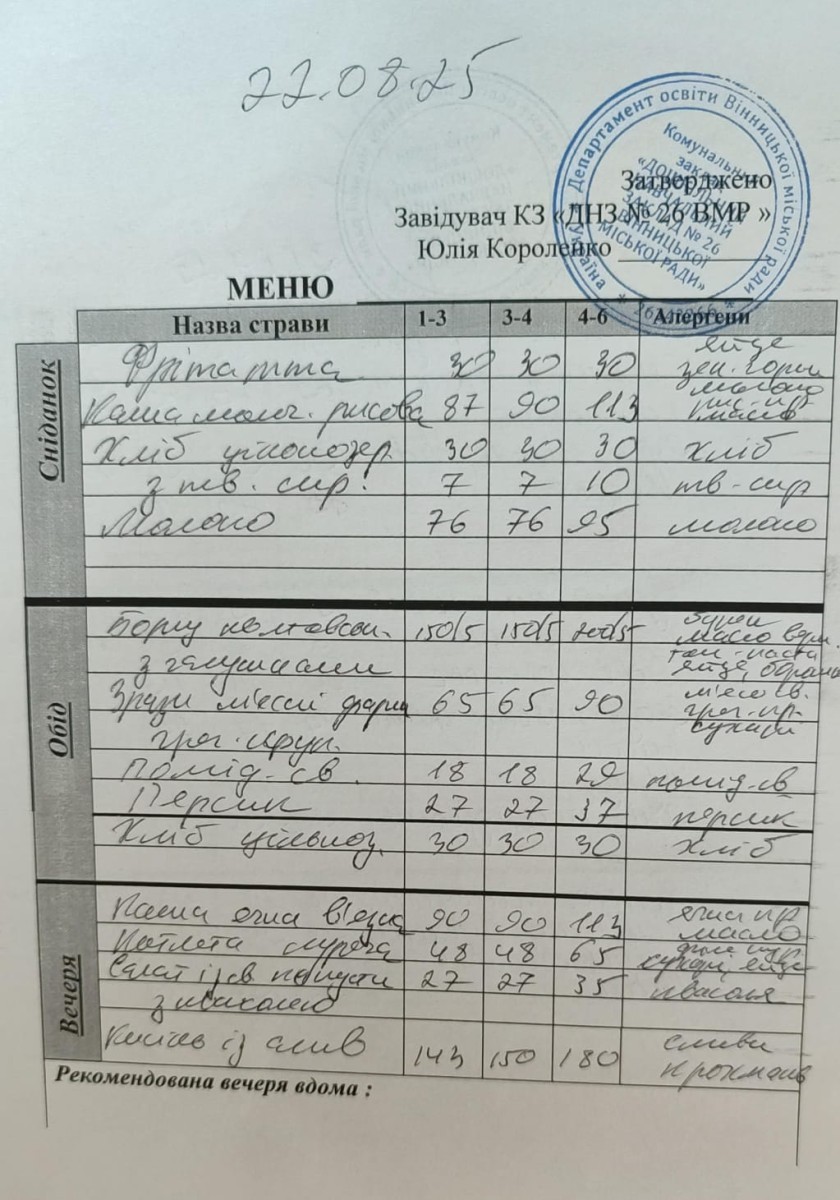 22.08.25
Департамент освіти Вінницької міської ради
Україна
Комунальний
заклад
«ДОШКІЛЬНИЙ
НАВЧАЛЬНИЙ
ЗАКЛАД № 26
ВІННИЦЬКОЇ
МІСЬКОЇ РАДИ»
Затверджено
Завідувач КЗ «ДНЗ № 26 ВМР »
Юлія Короленко
МЕНЮ
Назва страви 1-3 3-4 4-6 Алергени
Сніданок
яйце
Фрітатта 30 30 30 зел. горш
молоко
Каша молоч. рисова 87 90 113 рис. кр масло
Хліб цільнозер. 30 30 30 хліб
з тв. сир. 7 7 10 тв-сир
Молоко 76 76 95 молоко
Обід
Борщ полтавськ. 150/5 150/5 200/5 масло верш.
том-паста
з галушками яйце,
Зрази м'ясні фарш 65 65 90 м'ясо св.
греч-кр.
греч. круп. сухарі
Помід-св. 18 18 29 помід-св
Персик 27 27 37 персик
Хліб цільноз. 30 30 30 хліб
Вечеря
Каша ячна в'язка 90 90 113 ячна кр
масло
Котлета куряча 48 48 65 філе кур.
сухарі, яйце
Салат із св капусти 27 27 35 квасоля
з квасолею
Кисіль із слив 143 150 180 сливи
крохмаль
Рекомендована вечеря вдома :